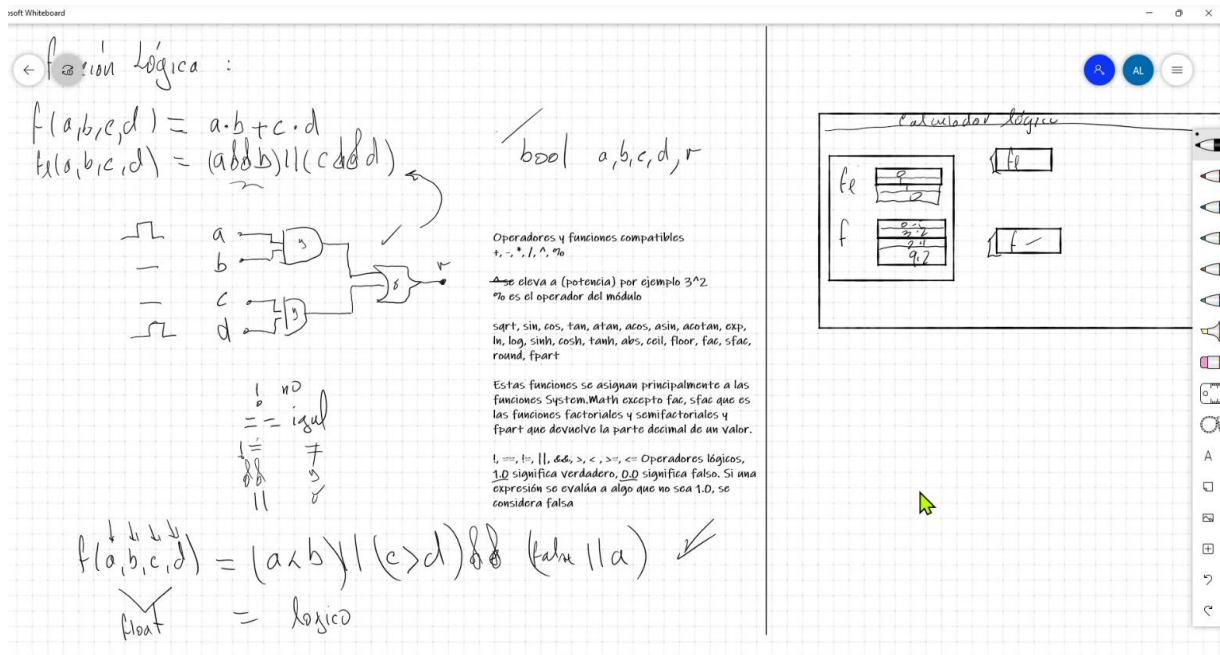 osoft Whiteboard
función Lógica :
f(a,b,c,d) = a·b+c·d
fe(a,b,c,d) = (a&&b)||(c&&d)
bool a,b,c,d,r
a
b
c
d
y
y
o
r
! no
== igual
!= ≠
&& y
|| o
Operadores y funciones compatibles
+, -, *, /, ^, %
^ se eleva a (potencia) por ejemplo 3^2
% es el operador del módulo
sqrt, sin, cos, tan, atan, acos, asin, acotan, exp,
ln, log, sinh, cosh, tanh, abs, ceil, floor, fac, sfac,
round, fpart
Estas funciones se asignan principalmente a las
funciones System.Math excepto fac, sfac que es
las funciones factoriales y semifactoriales y
fpart que devuelve la parte decimal de un valor.
!, ==, !=, ||, &&, >, <, >=, <= Operadores lógicos,
1.0 significa verdadero, 0.0 significa falso. Si una
expresión se evalúa a algo que no sea 1.0, se
considera falsa
f(a,b,c,d) = (a<b)||(c>d)&& (false ||a)
float = logico
AL
Calculador lógico
fe
fe
f
3.2
2.1
9.2
f
A